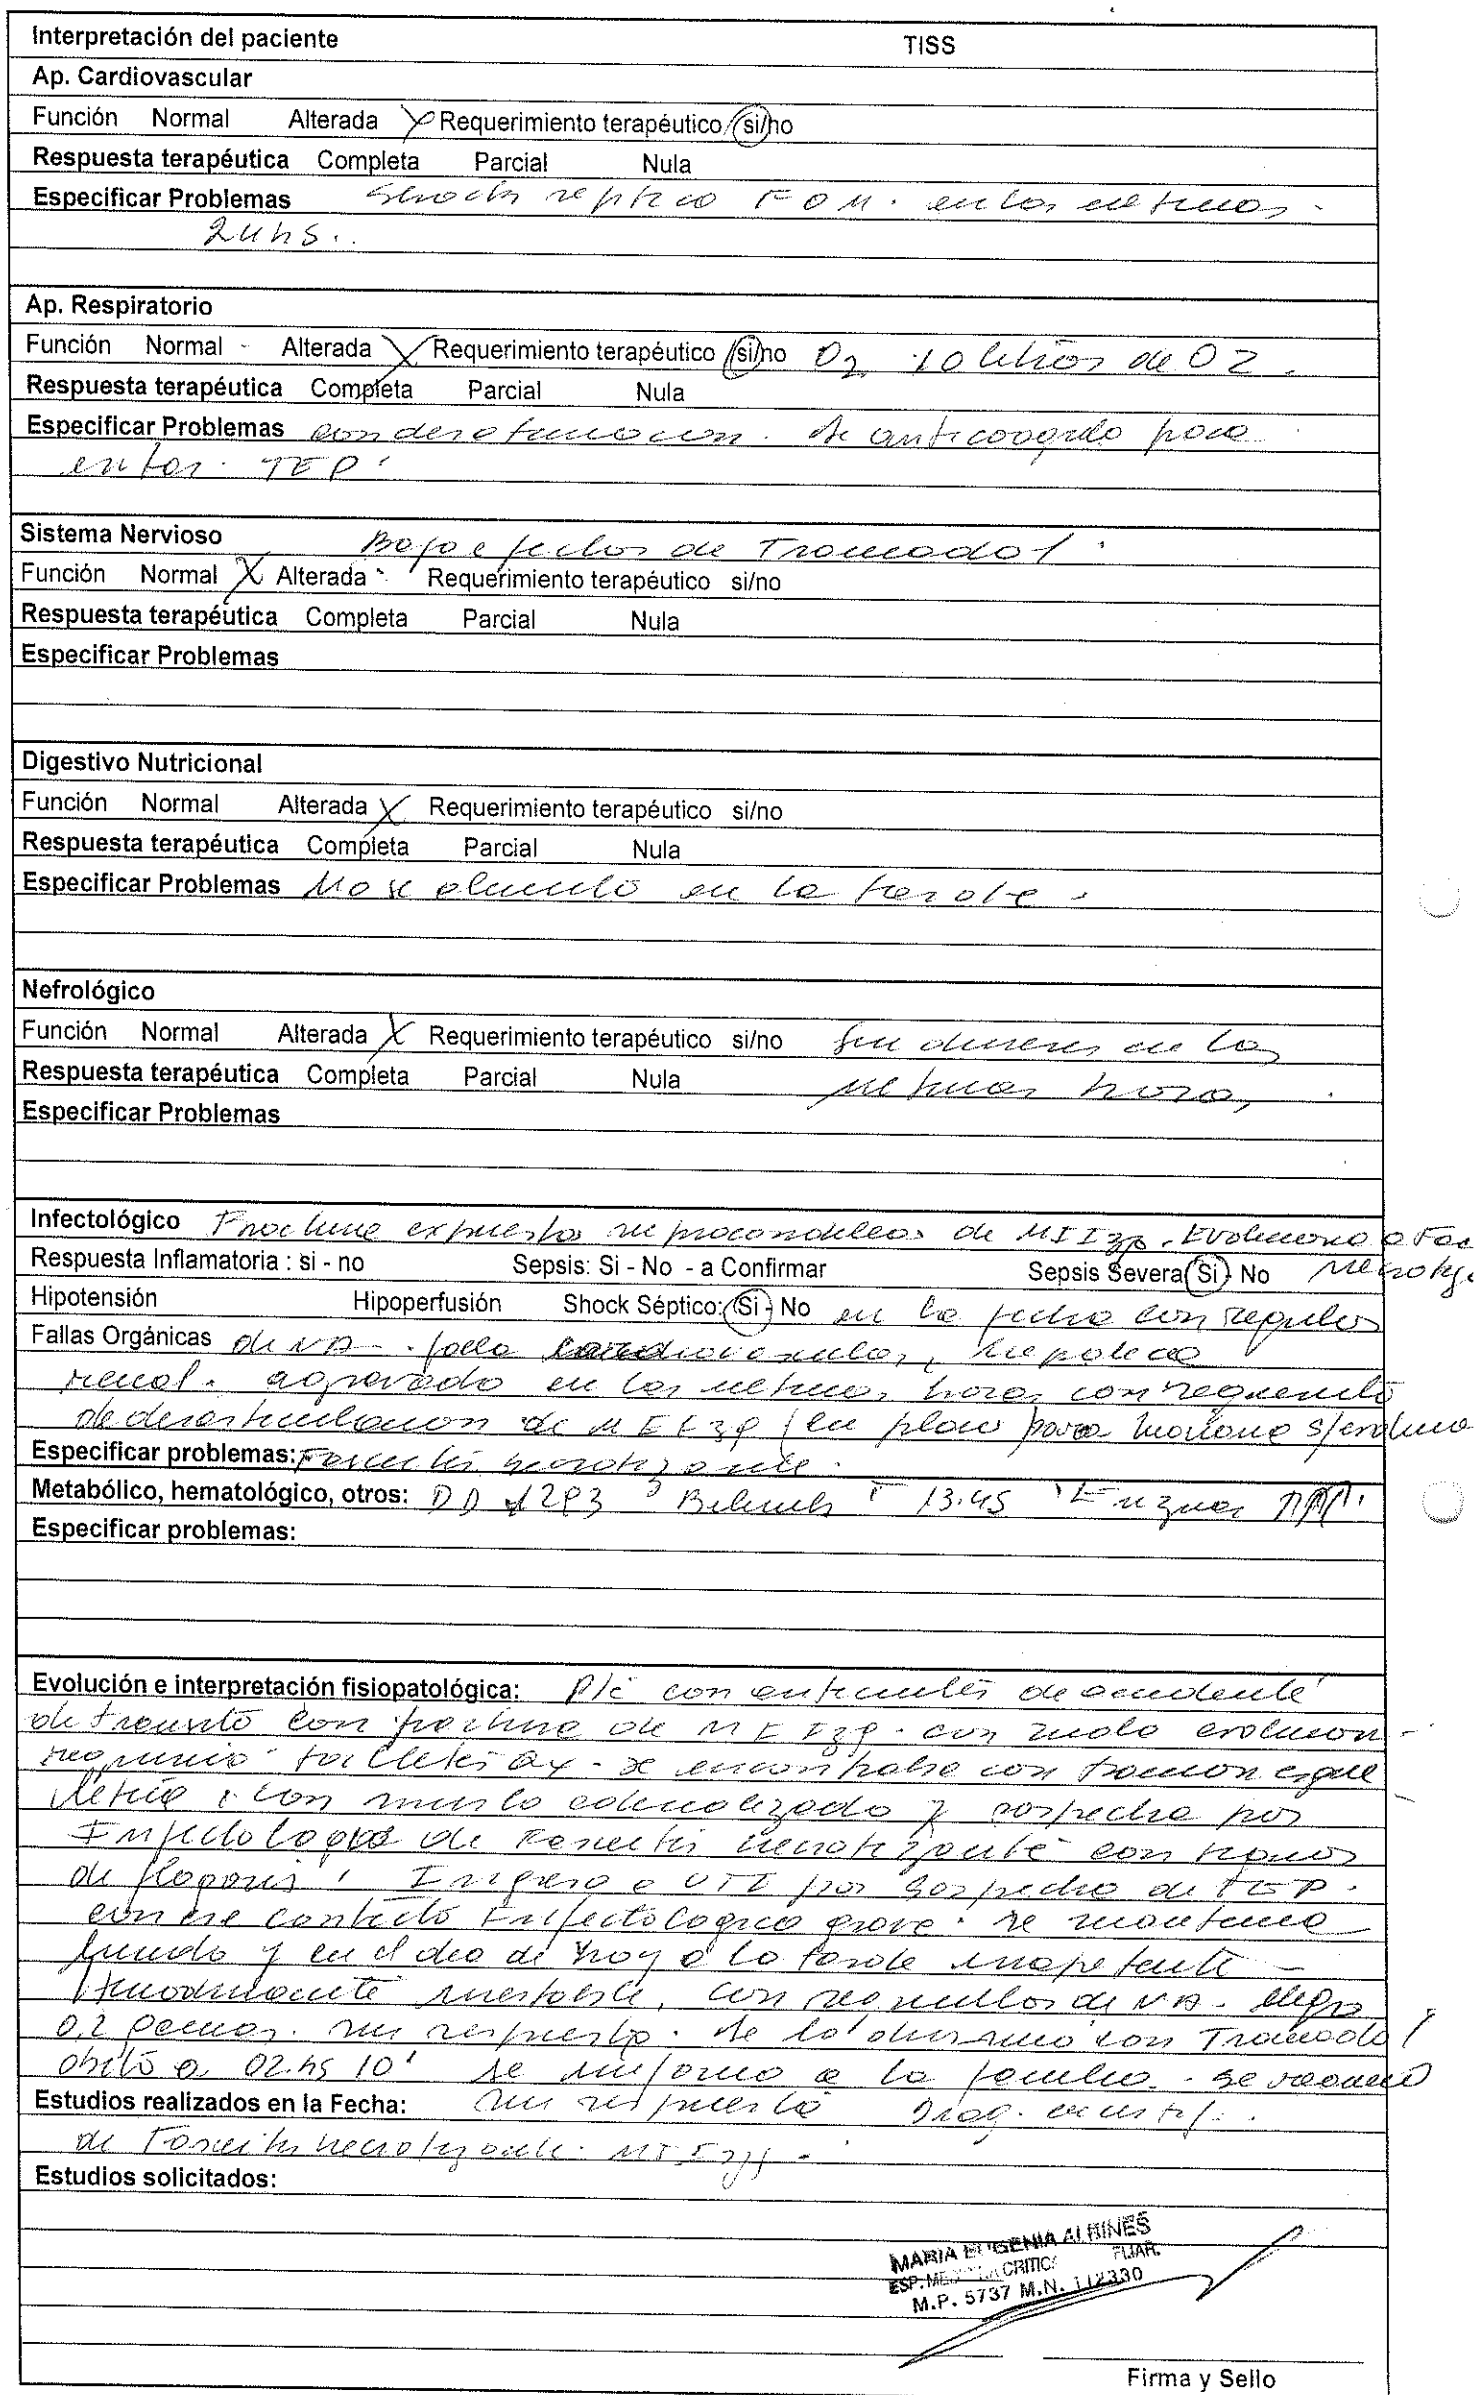 Interpretación del paciente TISS
Ap. Cardiovascular
Función Normal Alterada X Requerimiento terapéutico (si/no
Respuesta terapéutica Completa Parcial Nula
Especificar Problemas Shock septico FOM. en las ultimas
24hs..
Ap. Respiratorio
Función Normal - Alterada X Requerimiento terapéutico (si/no O2 10 litros de O2.
Respuesta terapéutica Completa Parcial Nula
Especificar Problemas con desaturacion. Se anticoagulo para
TEP.
Sistema Nervioso Bajo efectos de Tramadol.
Función Normal X Alterada Requerimiento terapéutico si/no
Respuesta terapéutica Completa Parcial Nula
Especificar Problemas
Digestivo Nutricional
Función Normal Alterada X Requerimiento terapéutico si/no
Respuesta terapéutica Completa Parcial Nula
Especificar Problemas No se alimentó en la tarde.
Nefrológico
Función Normal Alterada X Requerimiento terapéutico si/no Sin diuresis en las
Respuesta terapéutica Completa Parcial Nula ultimas horas.
Especificar Problemas
Infectológico Fractura expuesta supracondilea de MIIzq. Evoluciono a Fac
Respuesta Inflamatoria : si - no Sepsis: Si - No - a Confirmar Sepsis Severa (Si) No
Hipotensión Hipoperfusión Shock Séptico: (Si) - No en la fecha con
Fallas Orgánicas de NA. falla cardiovascular, hepatica
renal. agravado en las ultimas horas con
de desarticulacion de MIIzq (en plan para mañana s/evoluc
Especificar problemas: Fascitis necrotizante.
Metabólico, hematológico, otros: DD 1293 Bilirrub T 13.45
Especificar problemas:
Evolución e interpretación fisiopatológica: Pte con antecedentes de accidente
de transito con fractura de MIIzq. con mala evolucion
requirio toilettes Qx. se encontraba con traccion esque
letica, con muslo edematizado y sospecha por
Infectologia de Fascitis necrotizante con
de flogosis. Ingreso a UTI por sospecha de TEP.
con ese contexto Infectologico grave. se mantuvo
lucido y en el dia de hoy a la tarde inapetente
Hemodinamicamente inestable, con de NA. llego
0,2 gamas. sin respuesta. Se lo con Tramadol
obitó a 02 hs 10' se informo a la familia. se
Estudios realizados en la Fecha: sin respuesta Diag.
de Fascitis necrotizante. MIIzq.
Estudios solicitados:
MARIA EUGENIA ALBINES
M.P. 5737 M.N. 112330
Firma y Sello